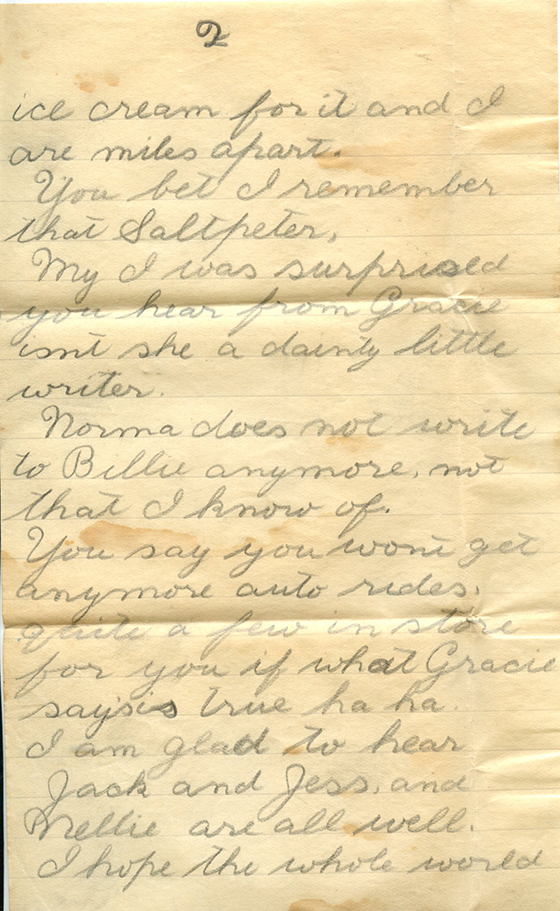 2
ice cream for it and I
are miles apart.
You bet I remember
that Saltpeter,
My I was surprised
you hear from Gracie
isnt she a dainty little
writer.
Norma does not write
to Billie anymore, not
that I know of.
You say you wont get
anymore auto rides,
quite a few in store
for you if what Gracie
says is true ha ha.
I am glad to hear
Jack and Jess, and
Nellie are all well.
I hope the whole world